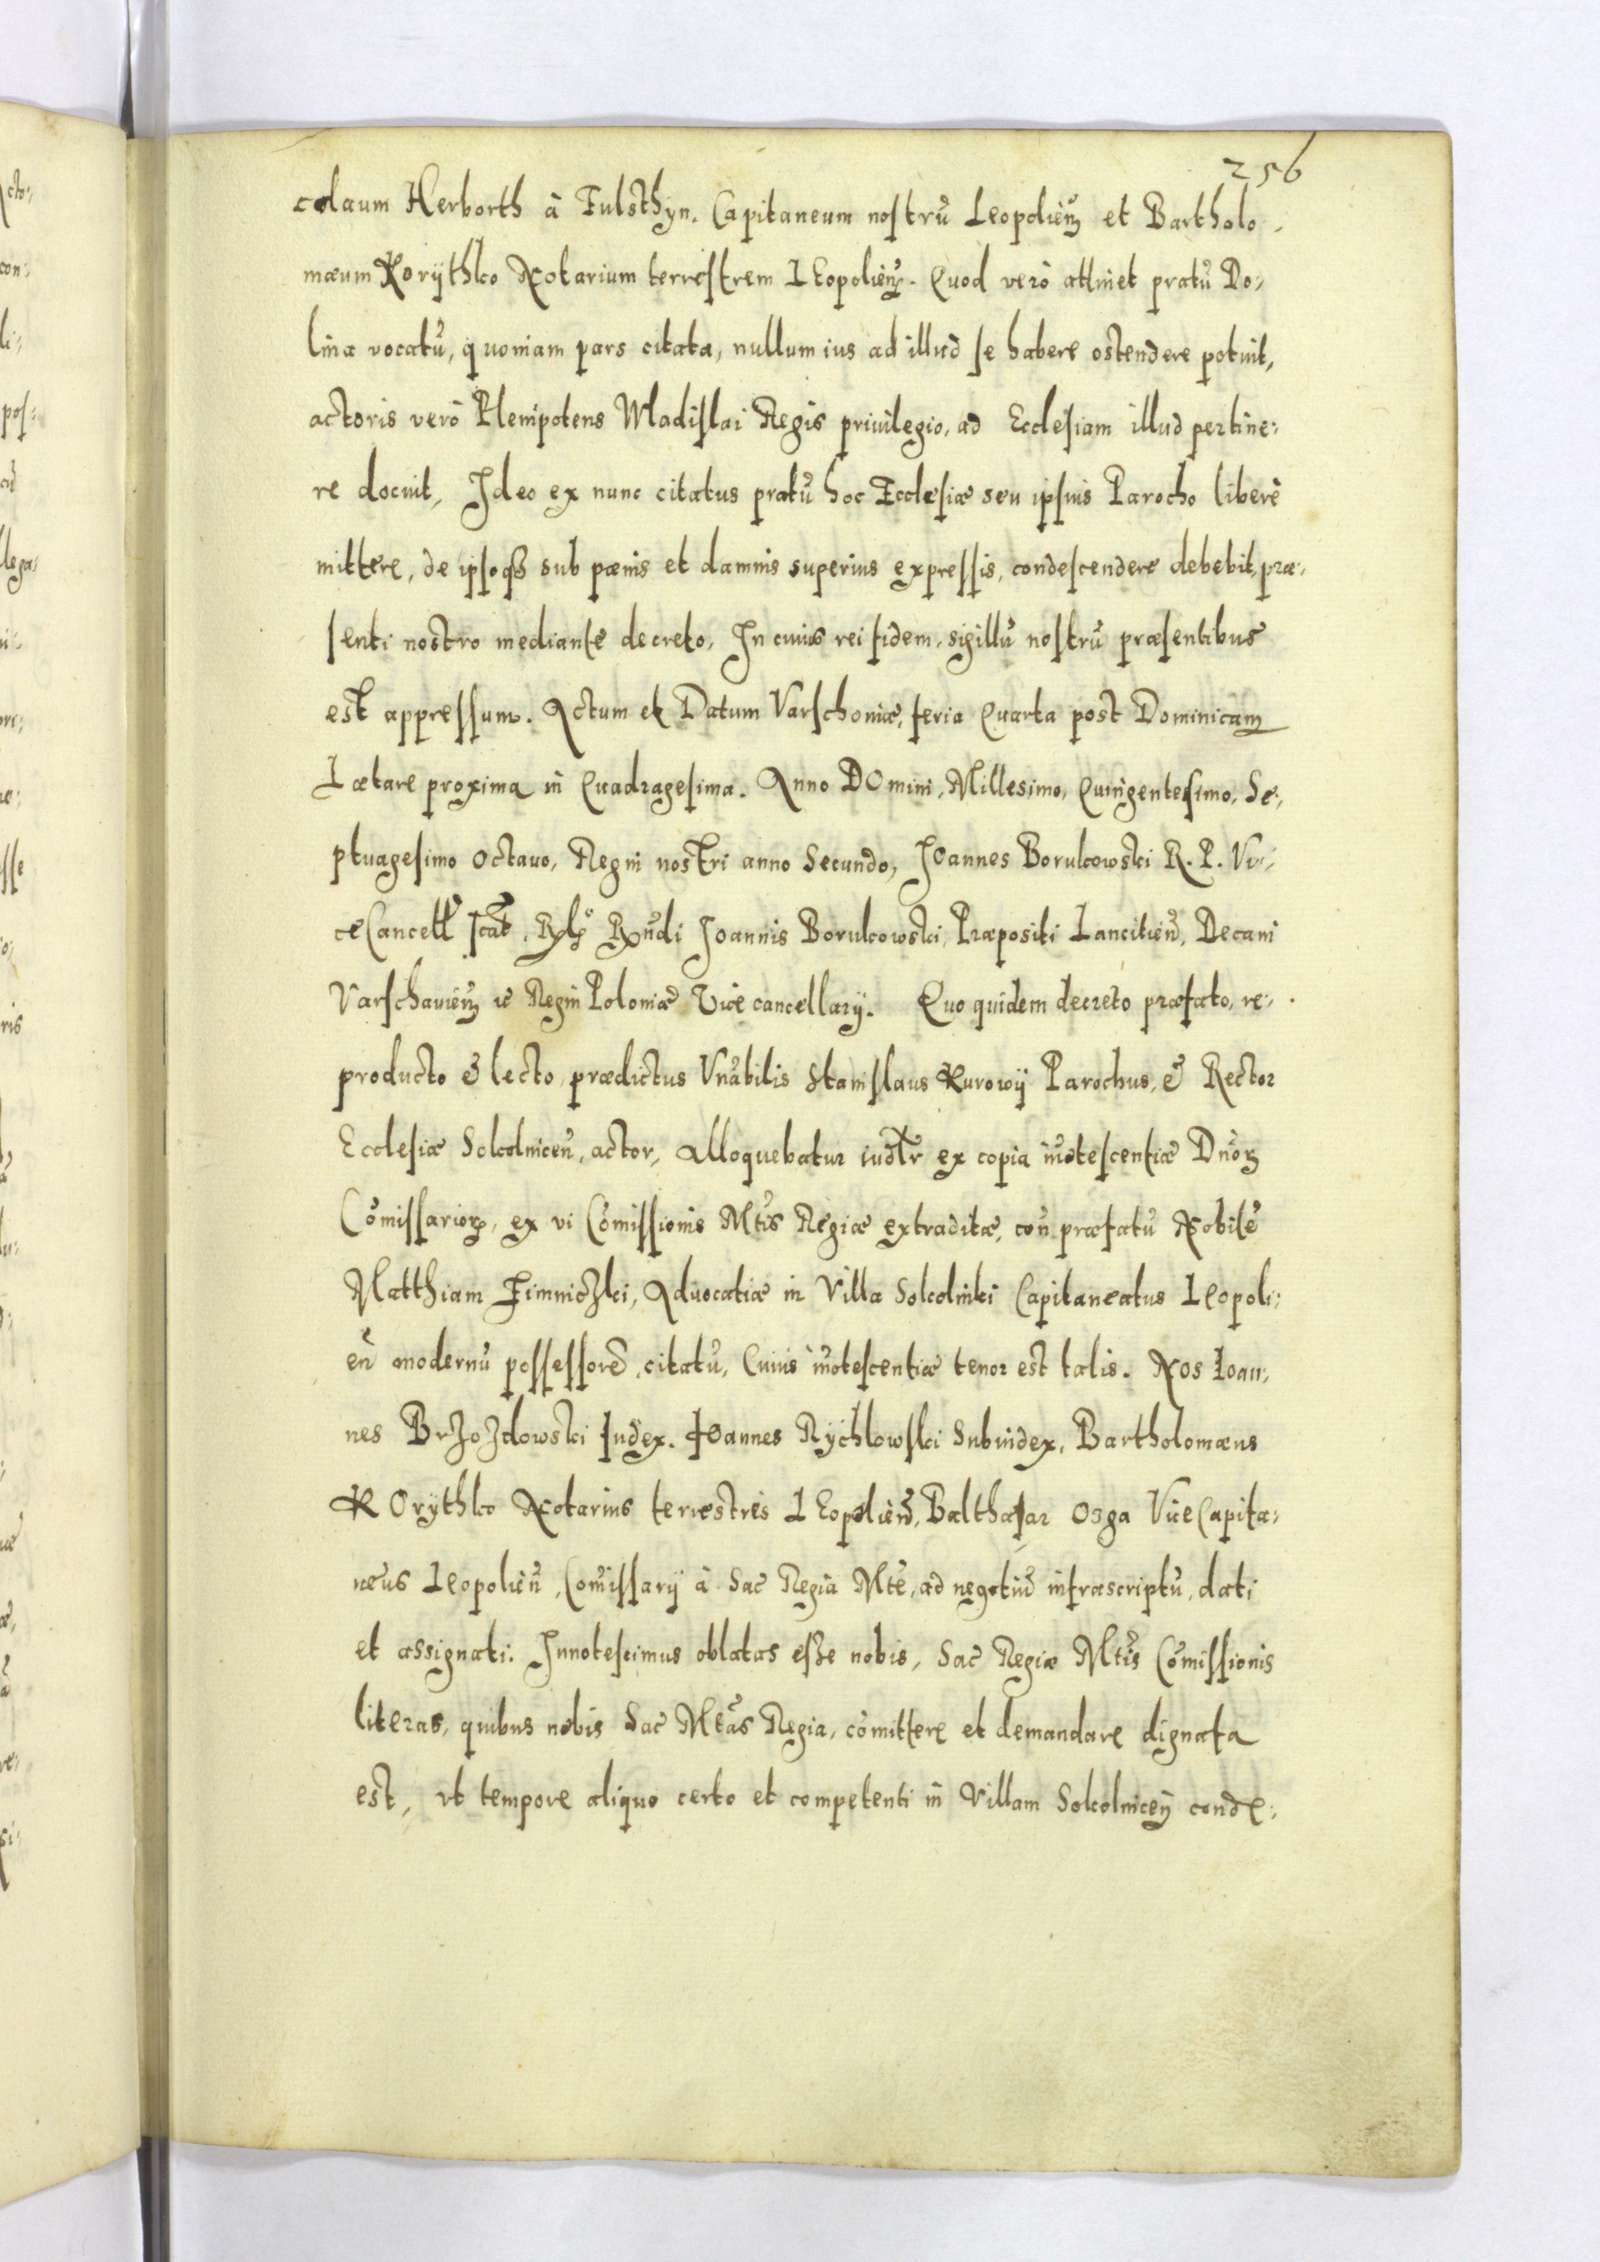 256
colaum Herborth à Fulsthyn. Capitaneum nostrũ Leopolieñ et Bartholo-
mæum Korÿthko Notarium terrestrem LEopolieñ. Quod verò attinet pratũ Do-
linæ vocatũ, quoniam pars citata, nullum ius ad illud se habere ostendere potuit,
actoris verò Plenipotens Wladislai Regis priuilegio, ad Ecclesiam illud pertine-
re docuit, Ideo ex nunc citatus pratũ hoc Ecclesiæ seu ipsius Parocho liberè
mittere, de ipsoqȝ sub pænis et damnis superius expressis, condescendere debebit, præ-
senti nostro mediante decreto, In cuius rei fidem, sigillũ nostrũ præsentibus
est appressum. Actum et Datum Varschouiæ, feria Quarta post Dominicam
Lætare proxima in Quadragesima. Anno DOmini, Millesimo, Quingentesimo, Se-
ptuagesimo Octauo, Regni nostri anno Secundo, Joannes Borukowski R. P. Vi-
ceCancell̃ Rñdi Joannis Borukowski, Præpositi Lancitieñ, Decani
Varschauieñ ac Regni Poloniæ Vicecancellarÿ. Quo quidem decreto præfato, re-
producto & lecto, prædictus Vnãbilis Stanislaus Kurowÿ Parochus, & Rector
Ecclesiæ Sokolniceñ, actor, alloquebatur iudlr ex copia iñotescentiæ Dñoꝝ
Cõmissarioꝝ, ex vi Cõmissionis Mtĩs Regiæ extraditæ, con præfatũ Nobilẽ
Matthiam Zimniczki, Aduocatiæ in Villa Sokolniki Capitaneatus Leopoli-
eñ modernũ possessorẽ, citatũ, Cuius iñotescentiæ tenor est talis. Nos Ioan-
nes Brzozdowski Iudex. Ioannes Rÿchlowski Subiudex, Bartholomæus
KOrÿthko Notarius terrestris LEopolieñ, Balthasar Ozga ViceCapita-
neus Leopolieñ, Comissarÿ à Sac Regia Mtẽ, ad negotiũ infrascriptũ, dati
et assignati. Innotescimus oblatas esse nobis, Sac Regiæ Mtĩs Cõmissionis
literas, quibus nobis Sac Mtãs Regia, cõmittere et demandare dignata
est, vt tempore aliquo certo et competenti in Villam Sokolniceñ conde-